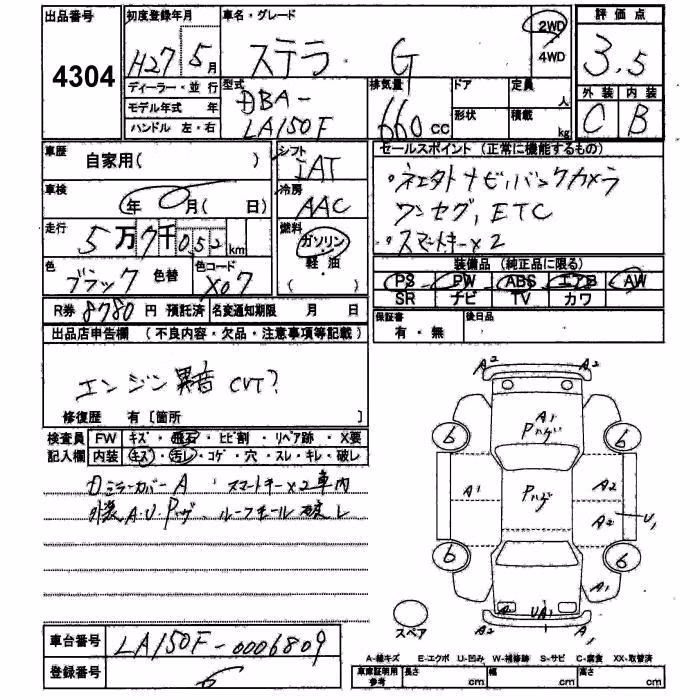 出品番号
4304
初度登録年月
H27 5月
車名・グレード
ステラ G
2WD
4WD
評価点
3.5
外装 内装
C B
ディーラー・並行
モデル年式 年
ハンドル 左・右
型式
DBA-
LA150F
排気量
660 cc
ドア
形状
定員
人
積載
kg
車歴
自家用( )
シフト
IAT
冷房
AAC
車検
年 月( 日)
走行
5万7千052km
燃料
ガソリン
軽・油
( )
色
ブラック 色替
色コード
X07
R券 8780円 預託済 名変通知期限 月 日
セールスポイント (正常に機能するもの)
ワンセグ, ETC
・スマートキー×2
装備品 (純正品に限る)
PS PW ABS エアB AW
SR ナビ TV カワ
保証書
有・無
後日品
出品店申告欄 (不良内容・欠品・注意事項等記載)
エンジン異音 CVT?
修復歴 有〔箇所 〕
検査員 FW キズ・飛石・ヒビ割・リペア跡・X要
記入欄 内装 キズ・汚レ・コゲ・穴・スレ・キレ・破レ
ミラーカバーA スマートキー×2車内
外装A.U.Pハゲ ルーフモール破レ
車台番号
LA150F-0006809
登録番号
A2 A2
A1
Pハゲ
6 6
A1 Pハゲ A2
A2 U1
6 6
A1
A UA1
A2 A1
スペア
A-線キズ E-エクボ U-凹み W-補修跡 S-サビ C-腐食 XX-取替済
車庫証明用
参考
長さ cm 幅 cm 高さ cm